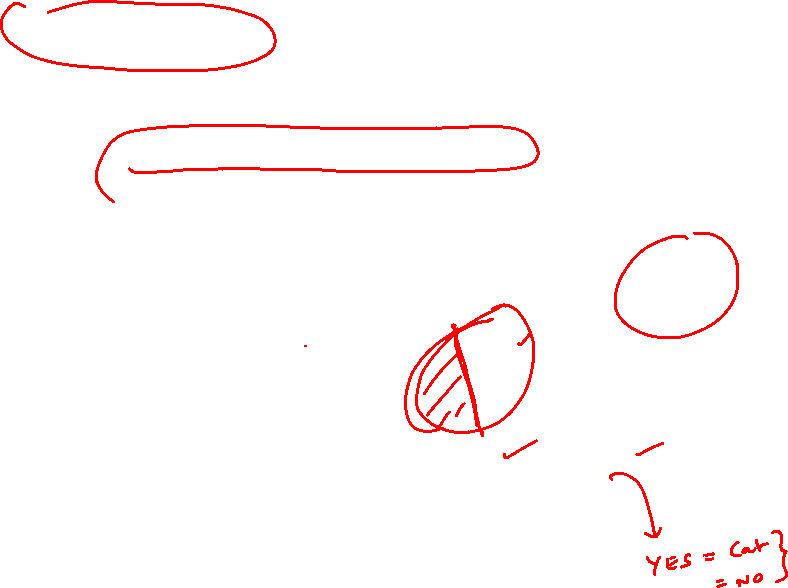 YES = Cat
= NO